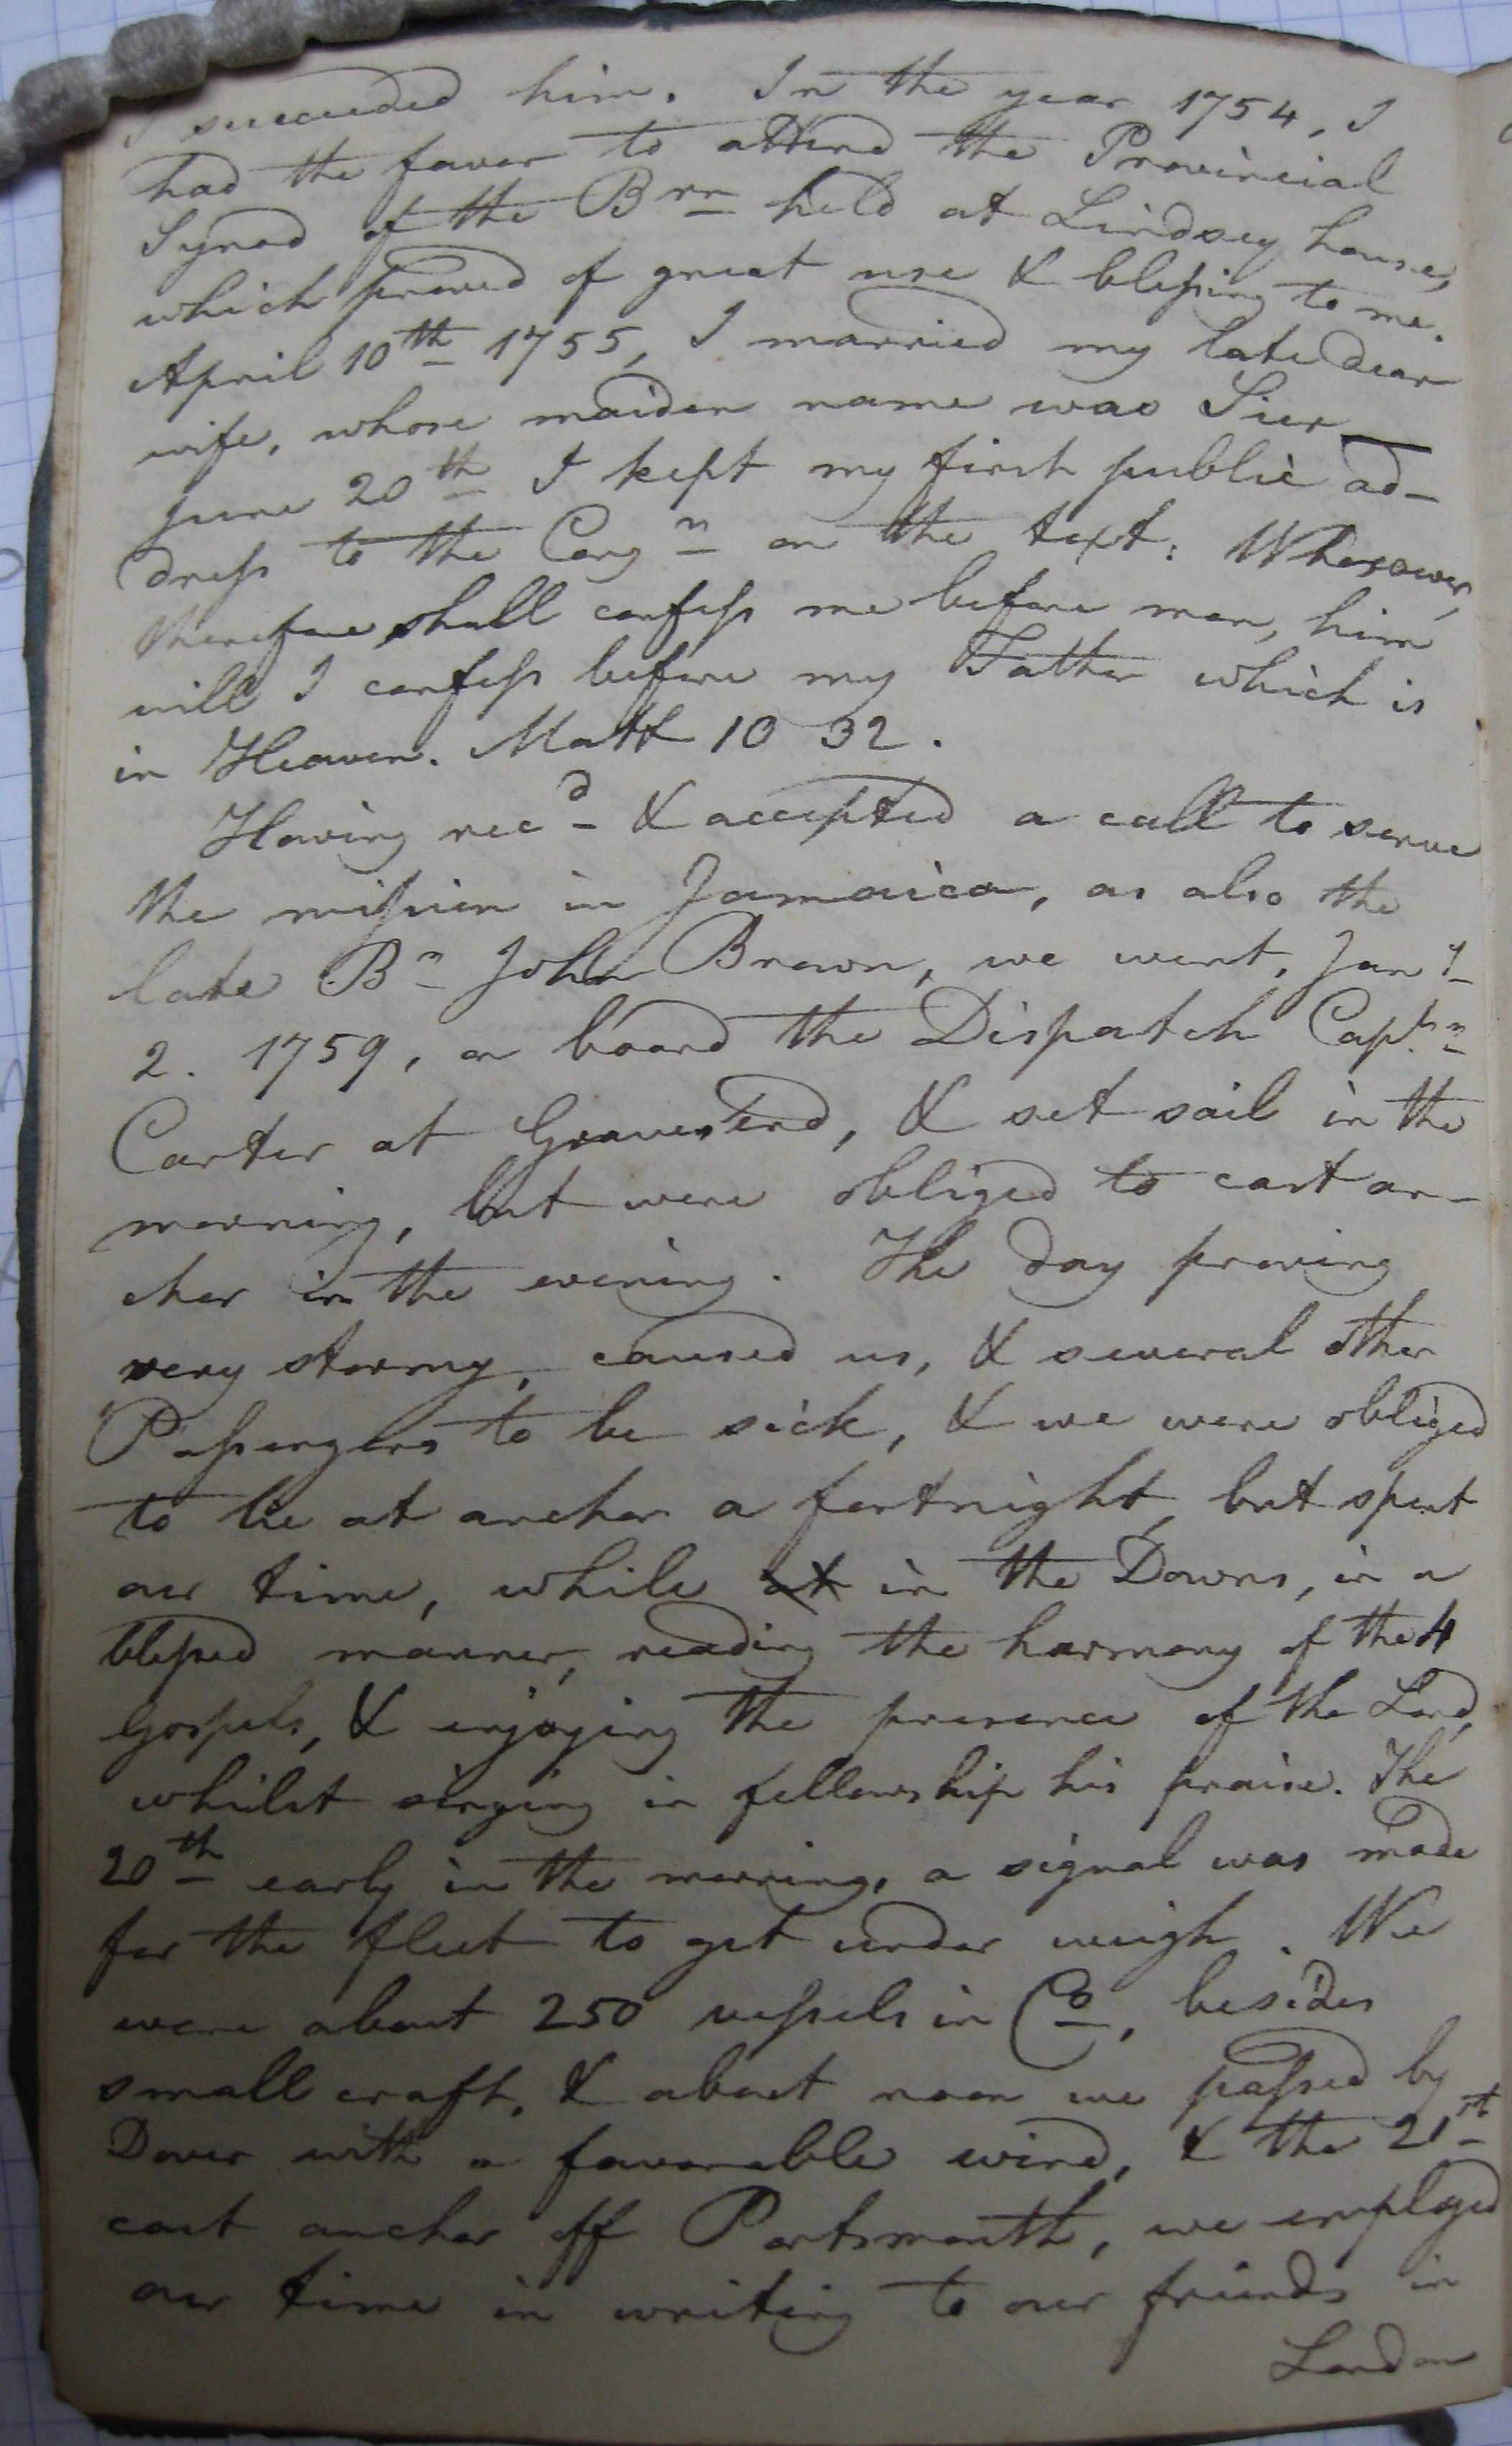 I succeeded him. In the year 1754, I
had the favor to attend the Provincial
Synod of the Brn held at Lindsey house,
which proved of great use & blessing to me.
April 10th 1755, I married my late dear
wife, whose maiden name was Sier
June 20th I kept my first public ad-
dress to the Congn on the text: Whosoever,
therefore shall confess me before men, him
will I confess before my Father which is
in Heaven. Matt 10 32.
Having recd & accepted a call to serve
the mission in Jamaica, as also the
late Br John Brown, we went, Jany
2. 1759, on board the Dispatch Captn
Carter at Gravesend, & set sail in the
morning, but were obliged to cast an-
chor in the evening. The day proving
very stormy, caused us, & several other
Passengers to be sick, & we were obliged
to lie at anchor a fortnight, but spent
our time, while at in the Downs, in a
blessed manner, reading the harmony of the 4
Gospels, & enjoying the presence of the Lord,
whilst singing in fellowship his praise. The
20th early in the morning, a signal was made
for the fleet to get under weigh. We
were about 250 vessels in Co, besides
small craft, & about noon we passed by
Dover with a favorable wind, & the 21st
cast anchor off Portsmouth, we employed
our time in writing to our friends in
London